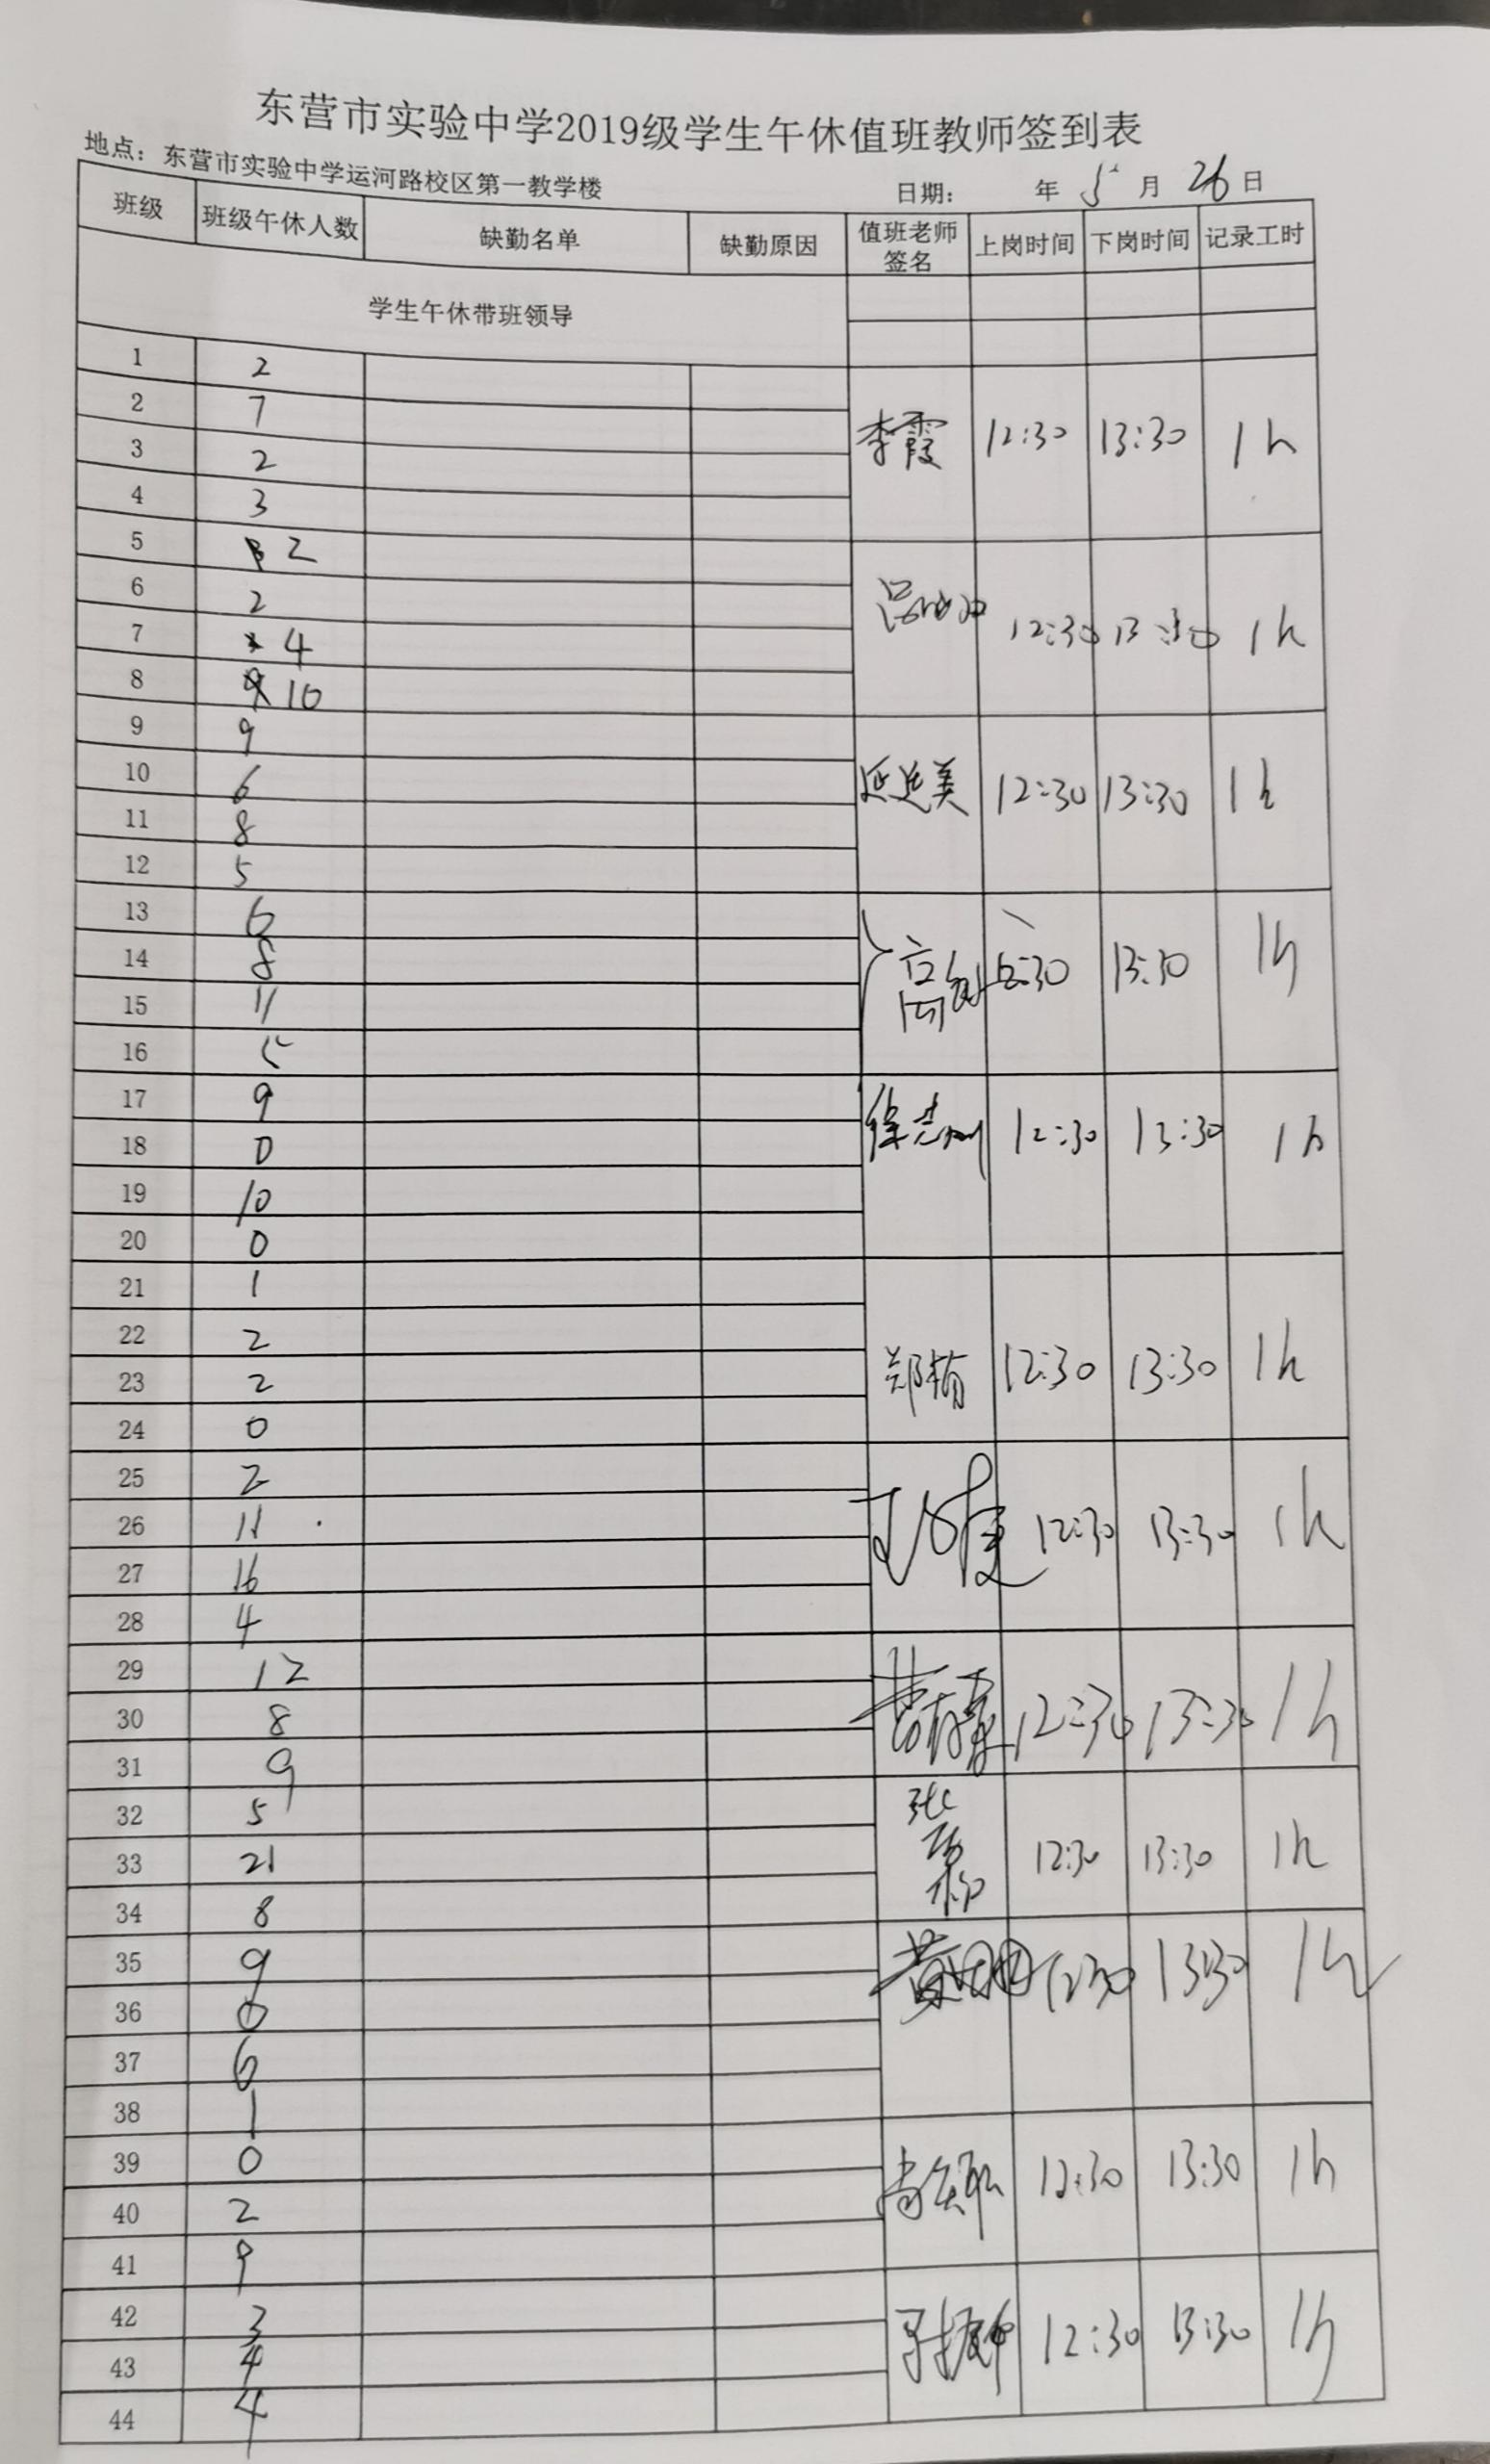 东营市实验中学2019级学生午休值班教师签到表
地点：东营市实验中学运河路校区第一教学楼 日期： 年 5 月 26 日
班级 班级午休人数 缺勤名单 缺勤原因 值班老师签名 上岗时间 下岗时间 记录工时
学生午休带班领导
1 2
2 7
3 2 李霞 12:30 13:30 1h
4 3
5 2
6 2
7 4 12:30 13:30 1h
8 10
9 9
10 6 延延美 12:30 13:30 1h
11 8
12 5
13 6
14 8 高 12:30 13:30 1h
15 11
16 5
17 9
18 0 徐志刚 12:30 13:30 1h
19 10
20 0
21 1
22 2
23 2 郑楠 12:30 13:30 1h
24 0
25 2
26 11 12:30 13:30 1h
27 16
28 4
29 12
30 8 12:30 13:30 1h
31 9
32 5
33 21 张 12:30 13:30 1h
34 8
35 9 黄 12:30 13:30 1h
36
37 6
38 1
39 0 12:30 13:30 1h
40 2
41 9
42 3 12:30 13:30 1h
43 4
44 4